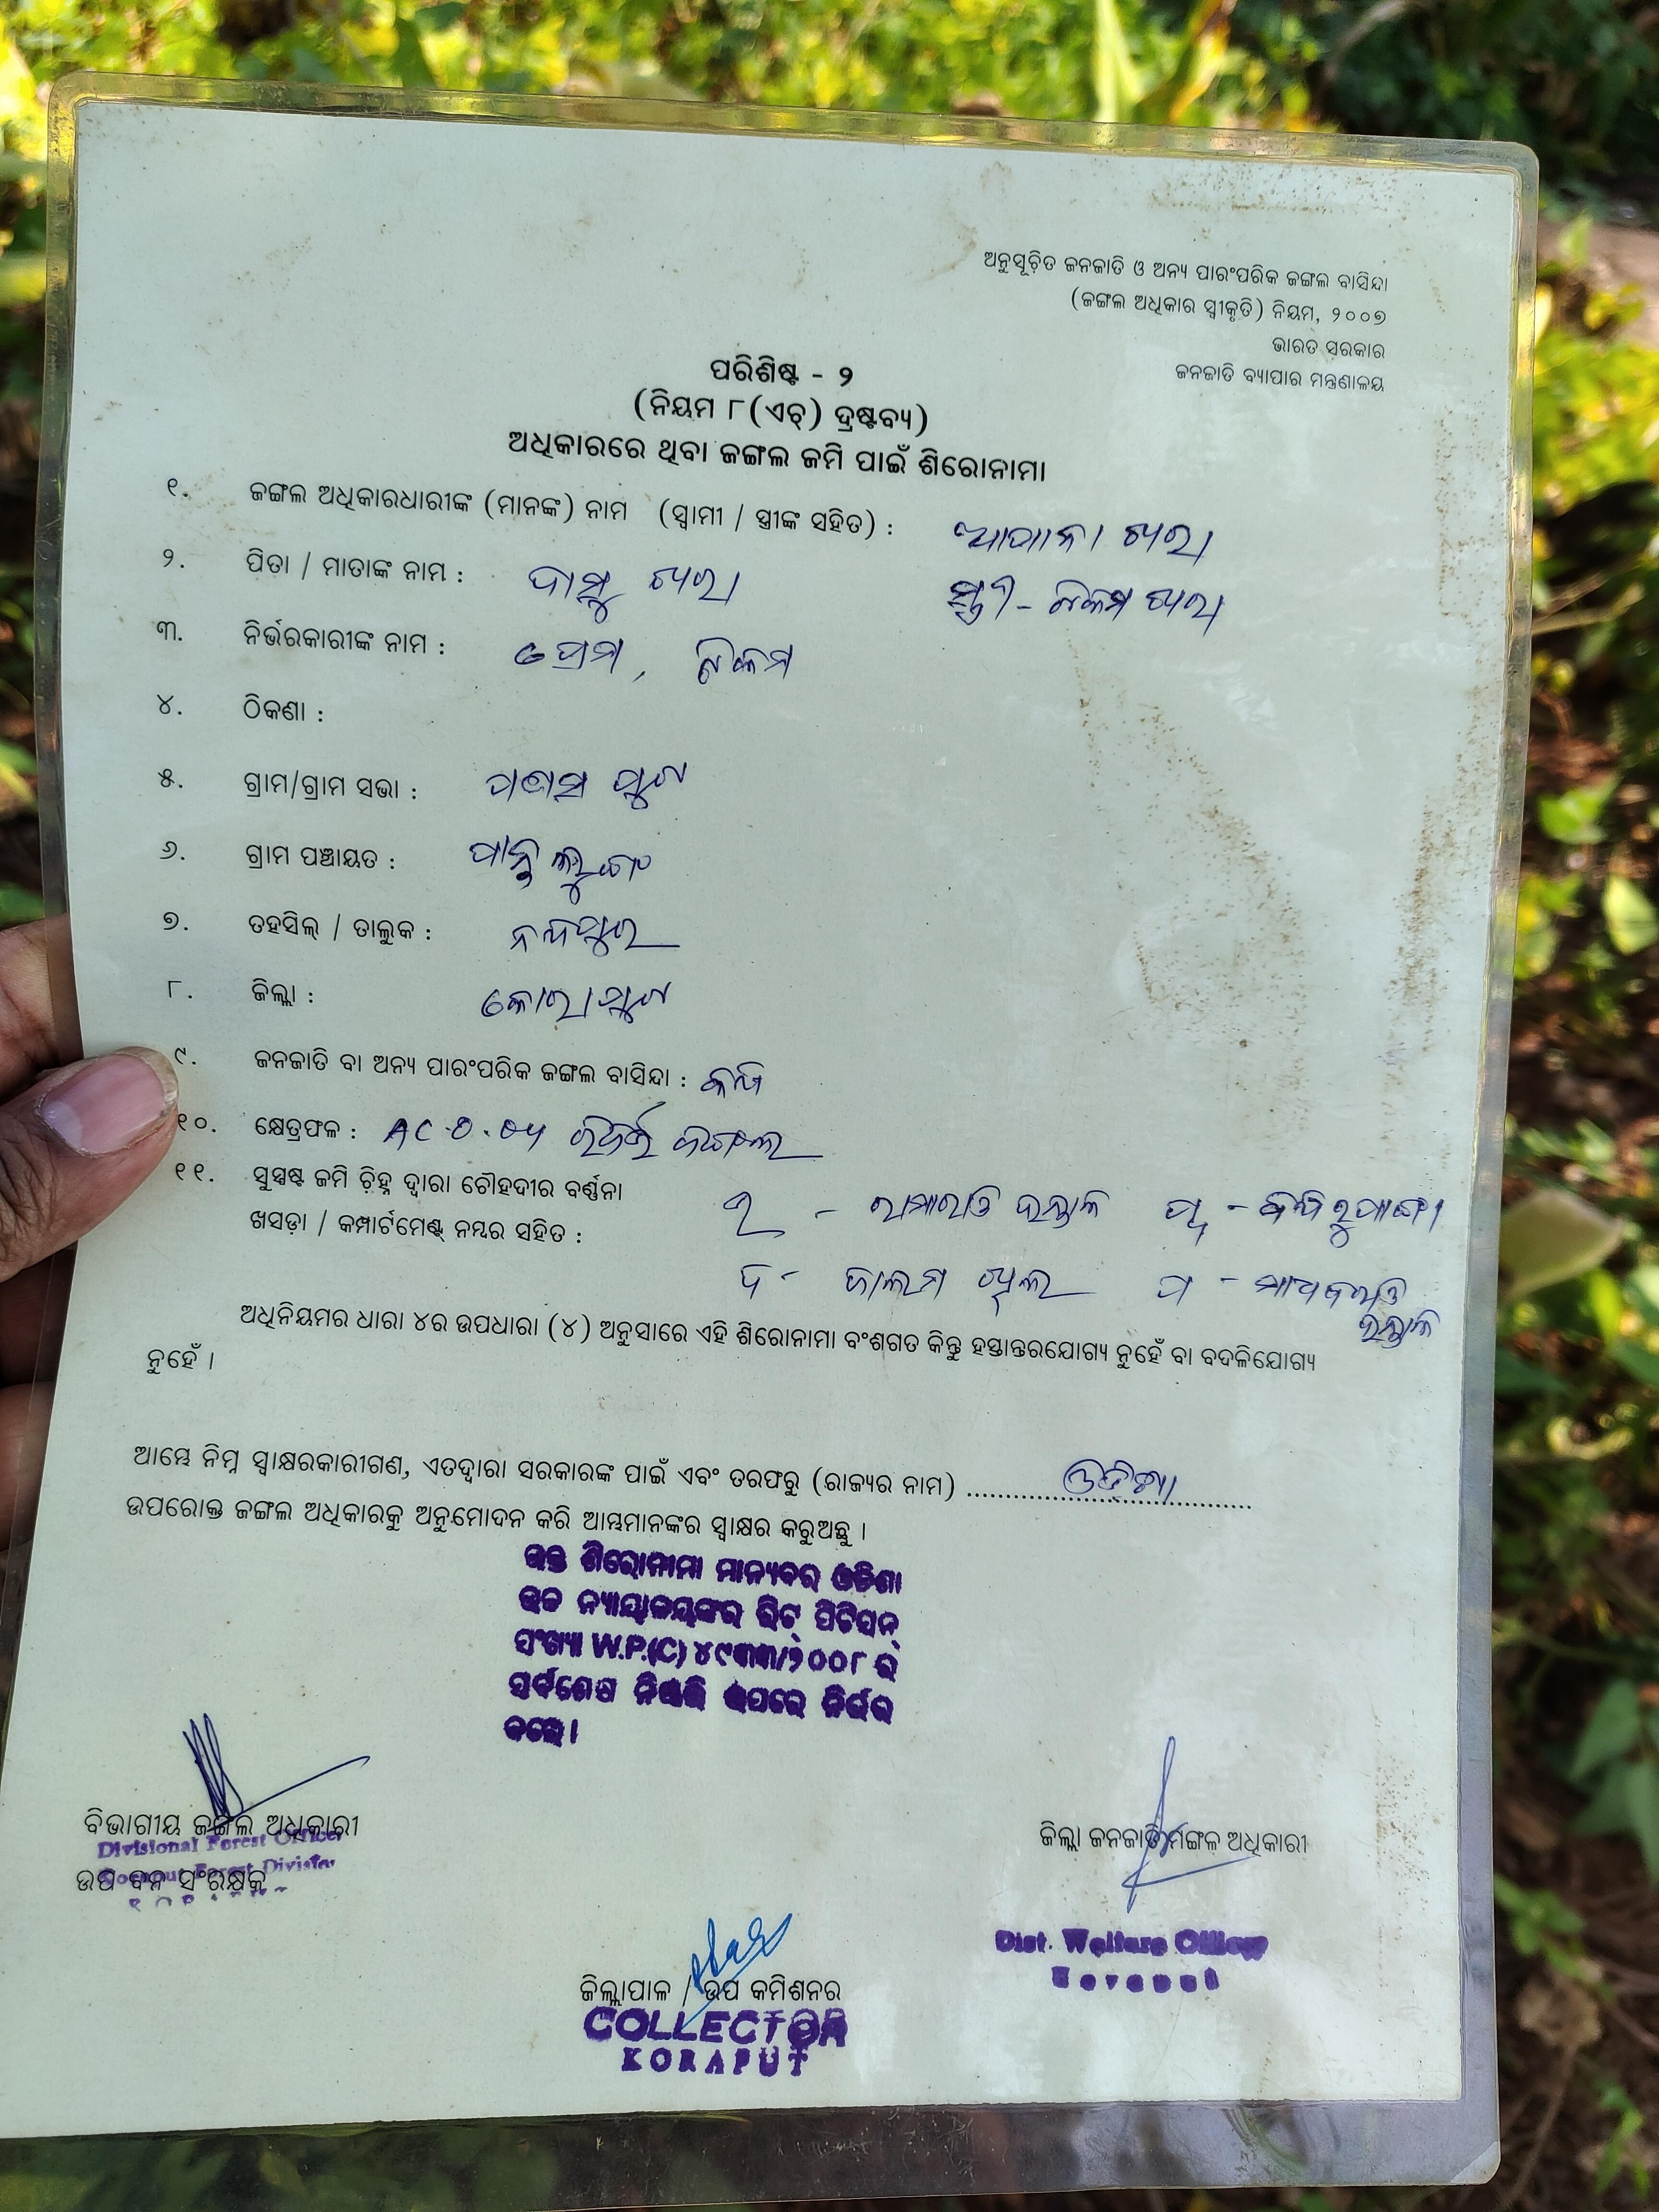 ଅନୁସୂଚିତ ଜନଜାତି ଓ ଅନ୍ୟ ପାରଂପରିକ ଜଙ୍ଗଲ ବାସିନ୍ଦା
(ଜଙ୍ଗଲ ଅଧିକାର ସ୍ୱୀକୃତି) ନିୟମ, ୨୦୦୭
ଭାରତ ସରକାର
ଜନଜାତି ବ୍ୟାପାର ମନ୍ତ୍ରଣାଳୟ
ପରିଶିଷ୍ଟ - ୨
(ନିୟମ ୮(ଏଚ୍) ଦ୍ରଷ୍ଟବ୍ୟ)
ଅଧିକାରରେ ଥିବା ଜଙ୍ଗଲ ଜମି ପାଇଁ ଶିରୋନାମା
୧. ଜଙ୍ଗଲ ଅଧିକାରଧାରୀଙ୍କ (ମାନଙ୍କ) ନାମ (ସ୍ୱାମୀ / ସ୍ତ୍ରୀଙ୍କ ସହିତ) : ଖରା
୨. ପିତା / ମାତାଙ୍କ ନାମ : ଦାସୁ ଖରା ସ୍ତ୍ରୀ - ଖରା
୩. ନିର୍ଭରକାରୀଙ୍କ ନାମ : ପ୍ରେମ,
୪. ଠିକଣା :
୫. ଗ୍ରାମ/ଗ୍ରାମ ସଭା : ପୁଟ
୬. ଗ୍ରାମ ପଞ୍ଚାୟତ :
୭. ତହସିଲ୍ / ତାଲୁକ : ନନ୍ଦପୁର
୮. ଜିଲ୍ଲା : କୋରାପୁଟ
୯. ଜନଜାତି ବା ଅନ୍ୟ ପାରଂପରିକ ଜଙ୍ଗଲ ବାସିନ୍ଦା :
୧୦. କ୍ଷେତ୍ରଫଳ : AC 0.
୧୧. ସୁସ୍ପଷ୍ଟ ଜମି ଚିହ୍ନ ଦ୍ୱାରା ଚୌହଦୀର ବର୍ଣ୍ଣନା
ଖସଡ଼ା / କମ୍ପାର୍ଟମେଣ୍ଟ୍ ନମ୍ବର ସହିତ :
ଅଧିନିୟମର ଧାରା ୪ର ଉପଧାରା (୪) ଅନୁସାରେ ଏହି ଶିରୋନାମା ବଂଶଗତ କିନ୍ତୁ ହସ୍ତାନ୍ତରଯୋଗ୍ୟ ନୁହେଁ ବା ବଦଳିଯୋଗ୍ୟ
ନୁହେଁ ।
ଆମ୍ଭେ ନିମ୍ନ ସ୍ୱାକ୍ଷରକାରୀଗଣ, ଏତଦ୍ୱାରା ସରକାରଙ୍କ ପାଇଁ ଏବଂ ତରଫରୁ (ରାଜ୍ୟର ନାମ) ..... ଓଡ଼ିଶା .....
ଉପରୋକ୍ତ ଜଙ୍ଗଲ ଅଧିକାରକୁ ଅନୁମୋଦନ କରି ଆମ୍ଭମାନଙ୍କର ସ୍ୱାକ୍ଷର କରୁଅଛୁ ।
ଉକ୍ତ ଶିରୋନାମା ମାନ୍ୟବର ଓଡିଶା
ଉଚ୍ଚ ନ୍ୟାୟାଳୟଙ୍କର ରିଟ୍ ପିଟିସନ୍
ସଂଖ୍ୟା W.P.(C) ୪୯୩୩/୨୦୦୮ ର
ସର୍ବଶେଷ ନିଷ୍ପତ୍ତି ଉପରେ ନିର୍ଭର
କରେ ।
ବିଭାଗୀୟ ଜଙ୍ଗଲ ଅଧିକାରୀ
Divisional Forest Officer
Koraput Forest Division
ଉପ ବନ ସଂରକ୍ଷକ
ଜିଲ୍ଲା ଜନଜାତି ମଙ୍ଗଳ ଅଧିକାରୀ
Dist. Welfare Officer
Koraput
ଜିଲ୍ଲାପାଳ / ଉପ କମିଶନର
COLLECTOR
KORAPUT